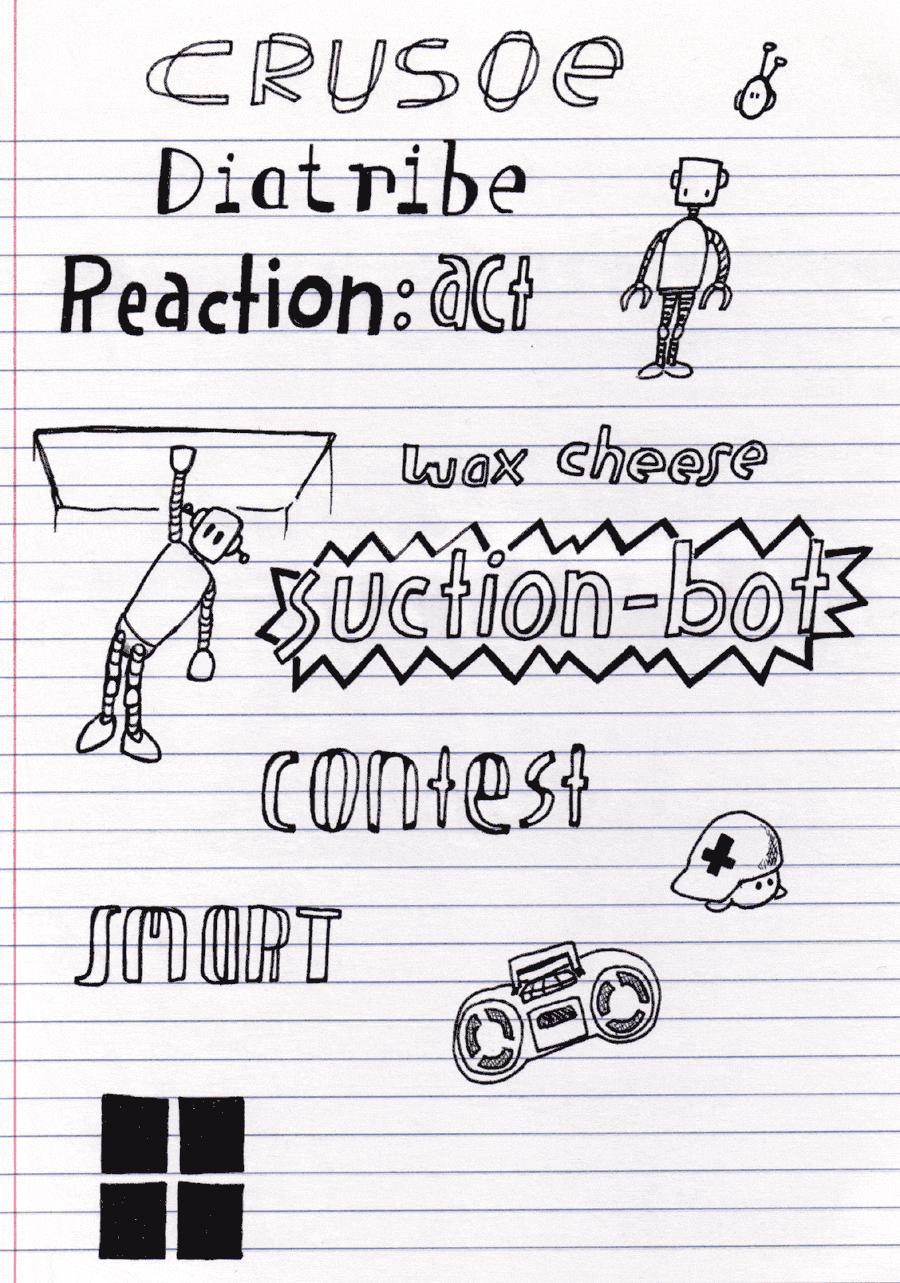 CRUSOE
Diatribe
Reaction: act
wax cheese
suction-bot
contest
SMART